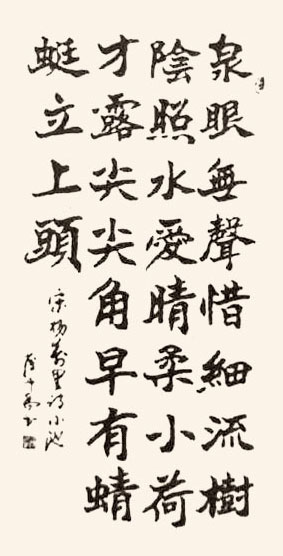 泉眼無聲惜細流樹
陰照水愛晴柔小荷
才露尖尖角早有蜻
蜓立上頭
宋楊萬里詩小池